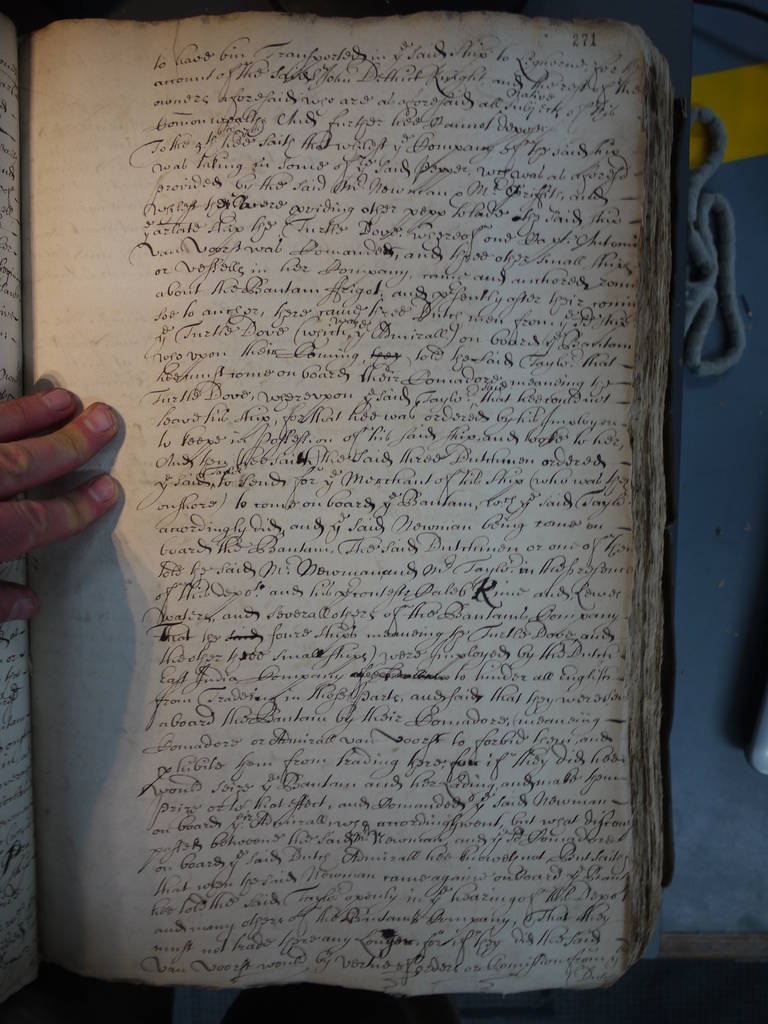 271
to have bin Transported in ye said ship to Leghorne, for the
account of the said John Dethick Knight and the rest of the
owners aforesaid, who are as aforesaid all Native Subjects of this
Comon wealth. And further hee cannot depose
To the 5th hee saith that whilest ye Company of the said ship
was taking in some of ye said Pepper, wch was as aforesd
provided by the said Mr Newman & Mr Griffith, and
whilest they were provideing other pepp to lade the said ship
ye arlate ship the Turtle Dove, whereof one Capt: Antonio
van Voorst was Comander, and three other small ships
or vessells in her Company, came and anchored round
about the Bantam ffrigot, and presently after their comeing
soe to anchor, there came three Dutch men from ye sd ship
ye Turtle Dove (which was ye Admirall) on board ye Bantam
who upon their Coming, told the said Taylor that
hee must come on board their Comadore, meaneing the
Turtle Dove, whereupon ye said Taylor said that hee could not
leave his ship, for that hee was ordered by his Imployers
to keepe in possession of his said ship and looke to her,
And then (hee saith) the said three Dutchmen ordered
ye said Taylor to send for ye Merchant of his ship (who was then
on shore) to come on board ye Bantam, wch ye said Taylor
accordingly did, and ye said Newman being come on
board the Bantam, The said Dutchmen or one of them
told the said Mr Newman and Mr Taylor in the presence
of this depot and his precontests Caleb Kime and Lewes
Waters, and severall others of the Bantams Company
That the said foure ships meaneing the Turtle Dove and
the other three small ships) were imployed by the Dutch
East India Company to hinder all English
from Tradeing in those parts, and said that they were sent
aboard the Bantam by their Comadore, (meaneing
Comadore or Admirall van Voorst to forbid them, and
prohibite them from trading there, for if they did hee
would seize ye Bantam and her Lading, and make them
prize or to that effect, and Comanded ye said Newman
on board ye Admirall, who accordingly went, but what discourse
passed betweene the said Mr Newman, and ye sd Comadore
on board ye said Dutch Admirall hee knoweth not, But saith
that when the said Newman came againe on board ye Bantam
hee told the said Taylor openly in ye heareing of this Depot
and many others of the Bantams Company, That they
must not trade there any Longer, for if they did the said
van Voorst would, by vertue of orders or Comission from ye
Dutch